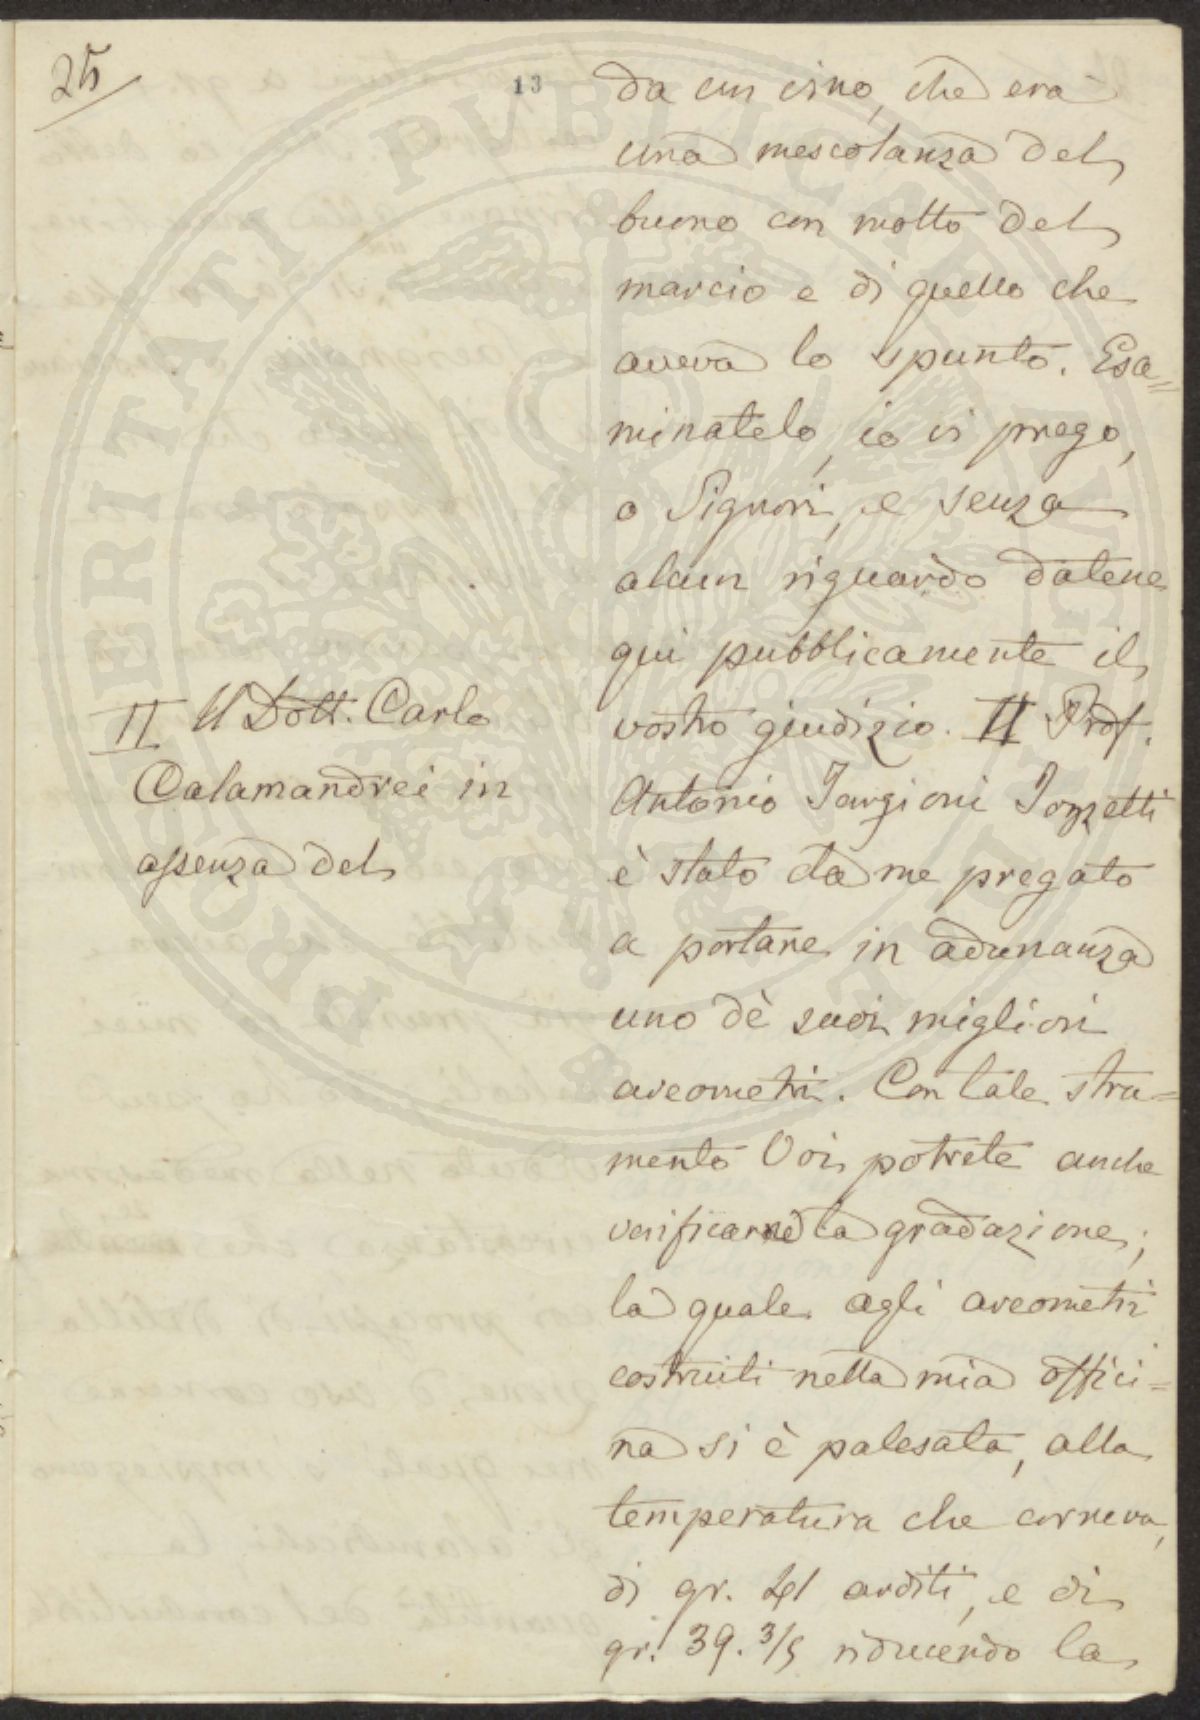 25
13
da un vino, che era
una mescolanza del
buono con molto del
marcio e di quello che
aveva lo spunto. Esa=
minatelo, io vi prego,
o Signori, e senza
alcun riguardo datene
qui pubblicamente il
vostro giudizio. II Prof.
Antonio Targioni Tozzetti
è stato da me pregato
a portare in adunanza
uno dè suoi migliori
areometri. Con tale stru=
mento Voi potrete anche
verificarne la gradazione;
la quale agli areometri
costruiti nella mia offici=
na si è palesata, alla
temperatura che correva,
di gr. 41 arditi, e di
gr. 39. 3/5 riducendo la
II Il Dott. Carlo
Calamandrei in
assenza del
PROSPERITATI PVBLICAE AVGENDAE